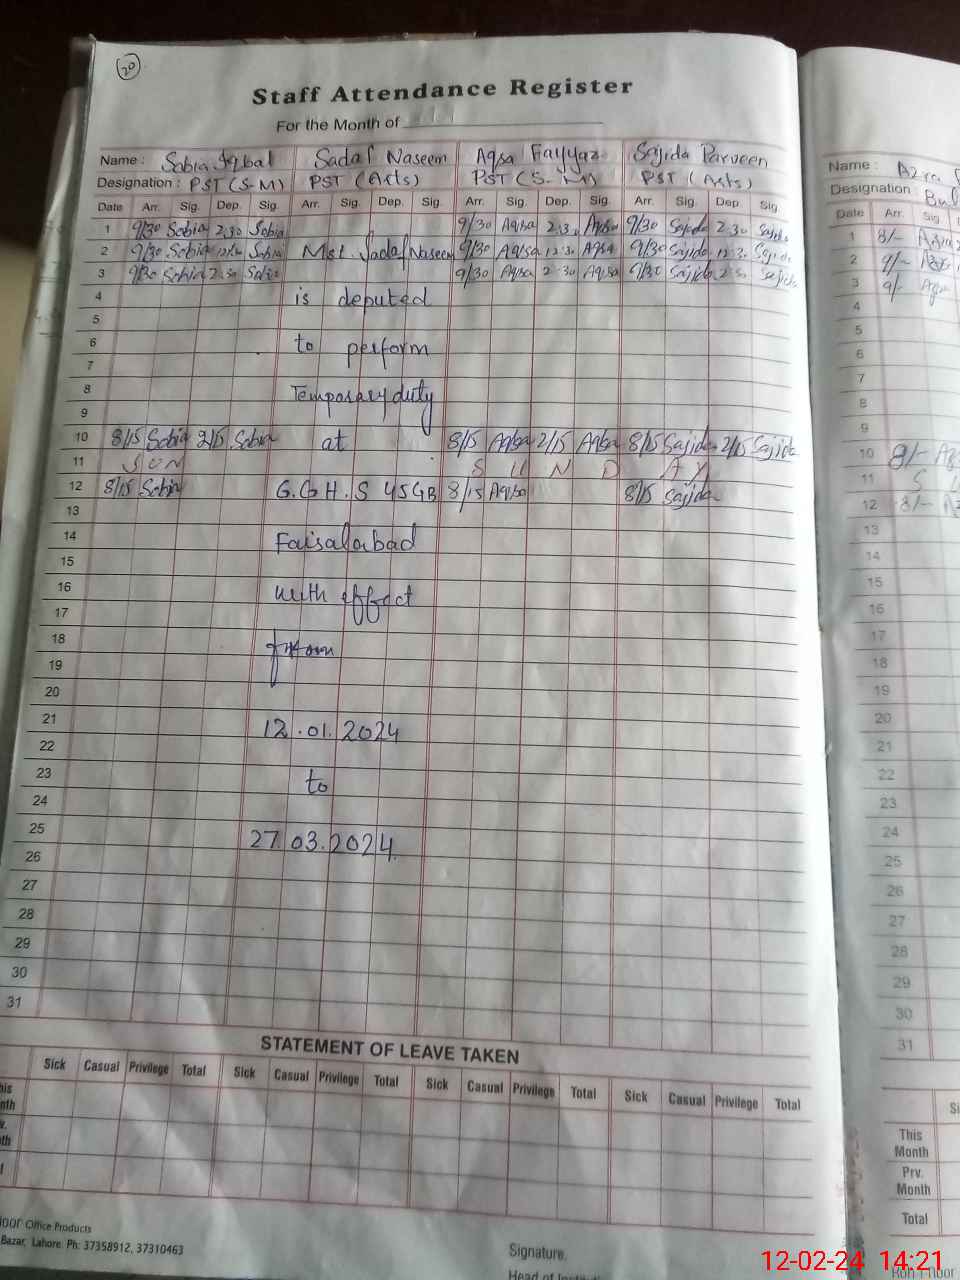 20
Staff Attendance Register
For the Month of
Name : Sobia Iqbal Sadaf Naseem Aqsa Fayyaz Sajida Parveen
Designation : PST (S-M) PST (Arts) PST (S-M) PST (Arts)
Date Arr. Sig. Dep. Sig. Arr. Sig. Dep. Sig. Arr. Sig. Dep. Sig. Arr. Sig. Dep. Sig.
1 9/30 Sobia 2:30 Sobia 9/30 Aqsa 2:30 Aqsa 9/30 Sajida 2:30 Sajida
2 9/30 Sobia 12:30 Sobia Mst. Sadaf Naseem 9/30 Aqsa 12:30 Aqsa 9/30 Sajida 12:30 Sajida
3 9/30 Sobia 2:30 Sobia 9/30 Aqsa 2:30 Aqsa 9/30 Sajida 2:30 Sajida
4 is deputed
5
6 to perform
7
8 Temporary duty
9
10 8/15 Sobia 2/15 Sobia at 8/15 Aqsa 2/15 Aqsa 8/15 Sajida 2/15 Sajida
11 SUN S U N D A Y
12 8/15 Sobia G.G.H.S 45GB 8/15 Aqsa 8/15 Sajida
13
14 Faisalabad
15
16 with effect
17
18 from
19
20
21 12.01.2024
22
23 to
24
25 27.03.2024
26
27
28
29
30
31
STATEMENT OF LEAVE TAKEN
Sick Casual Privilege Total Sick Casual Privilege Total Sick Casual Privilege Total Sick Casual Privilege Total
Office Products
Bazar, Lahore. Ph: 37358912, 37310463
Signature.
Head of
Name :
Designation :
Date Arr. Sig
1 8/-
2 9/-
3 9/-
4
5
6
7
8
9
10 8/-
11 S
12 8/-
13
14
15
16
17
18
19
20
21
22
23
24
25
26
27
28
29
30
31
This
Month
Prv.
Month
Total
12-02-24 14:21